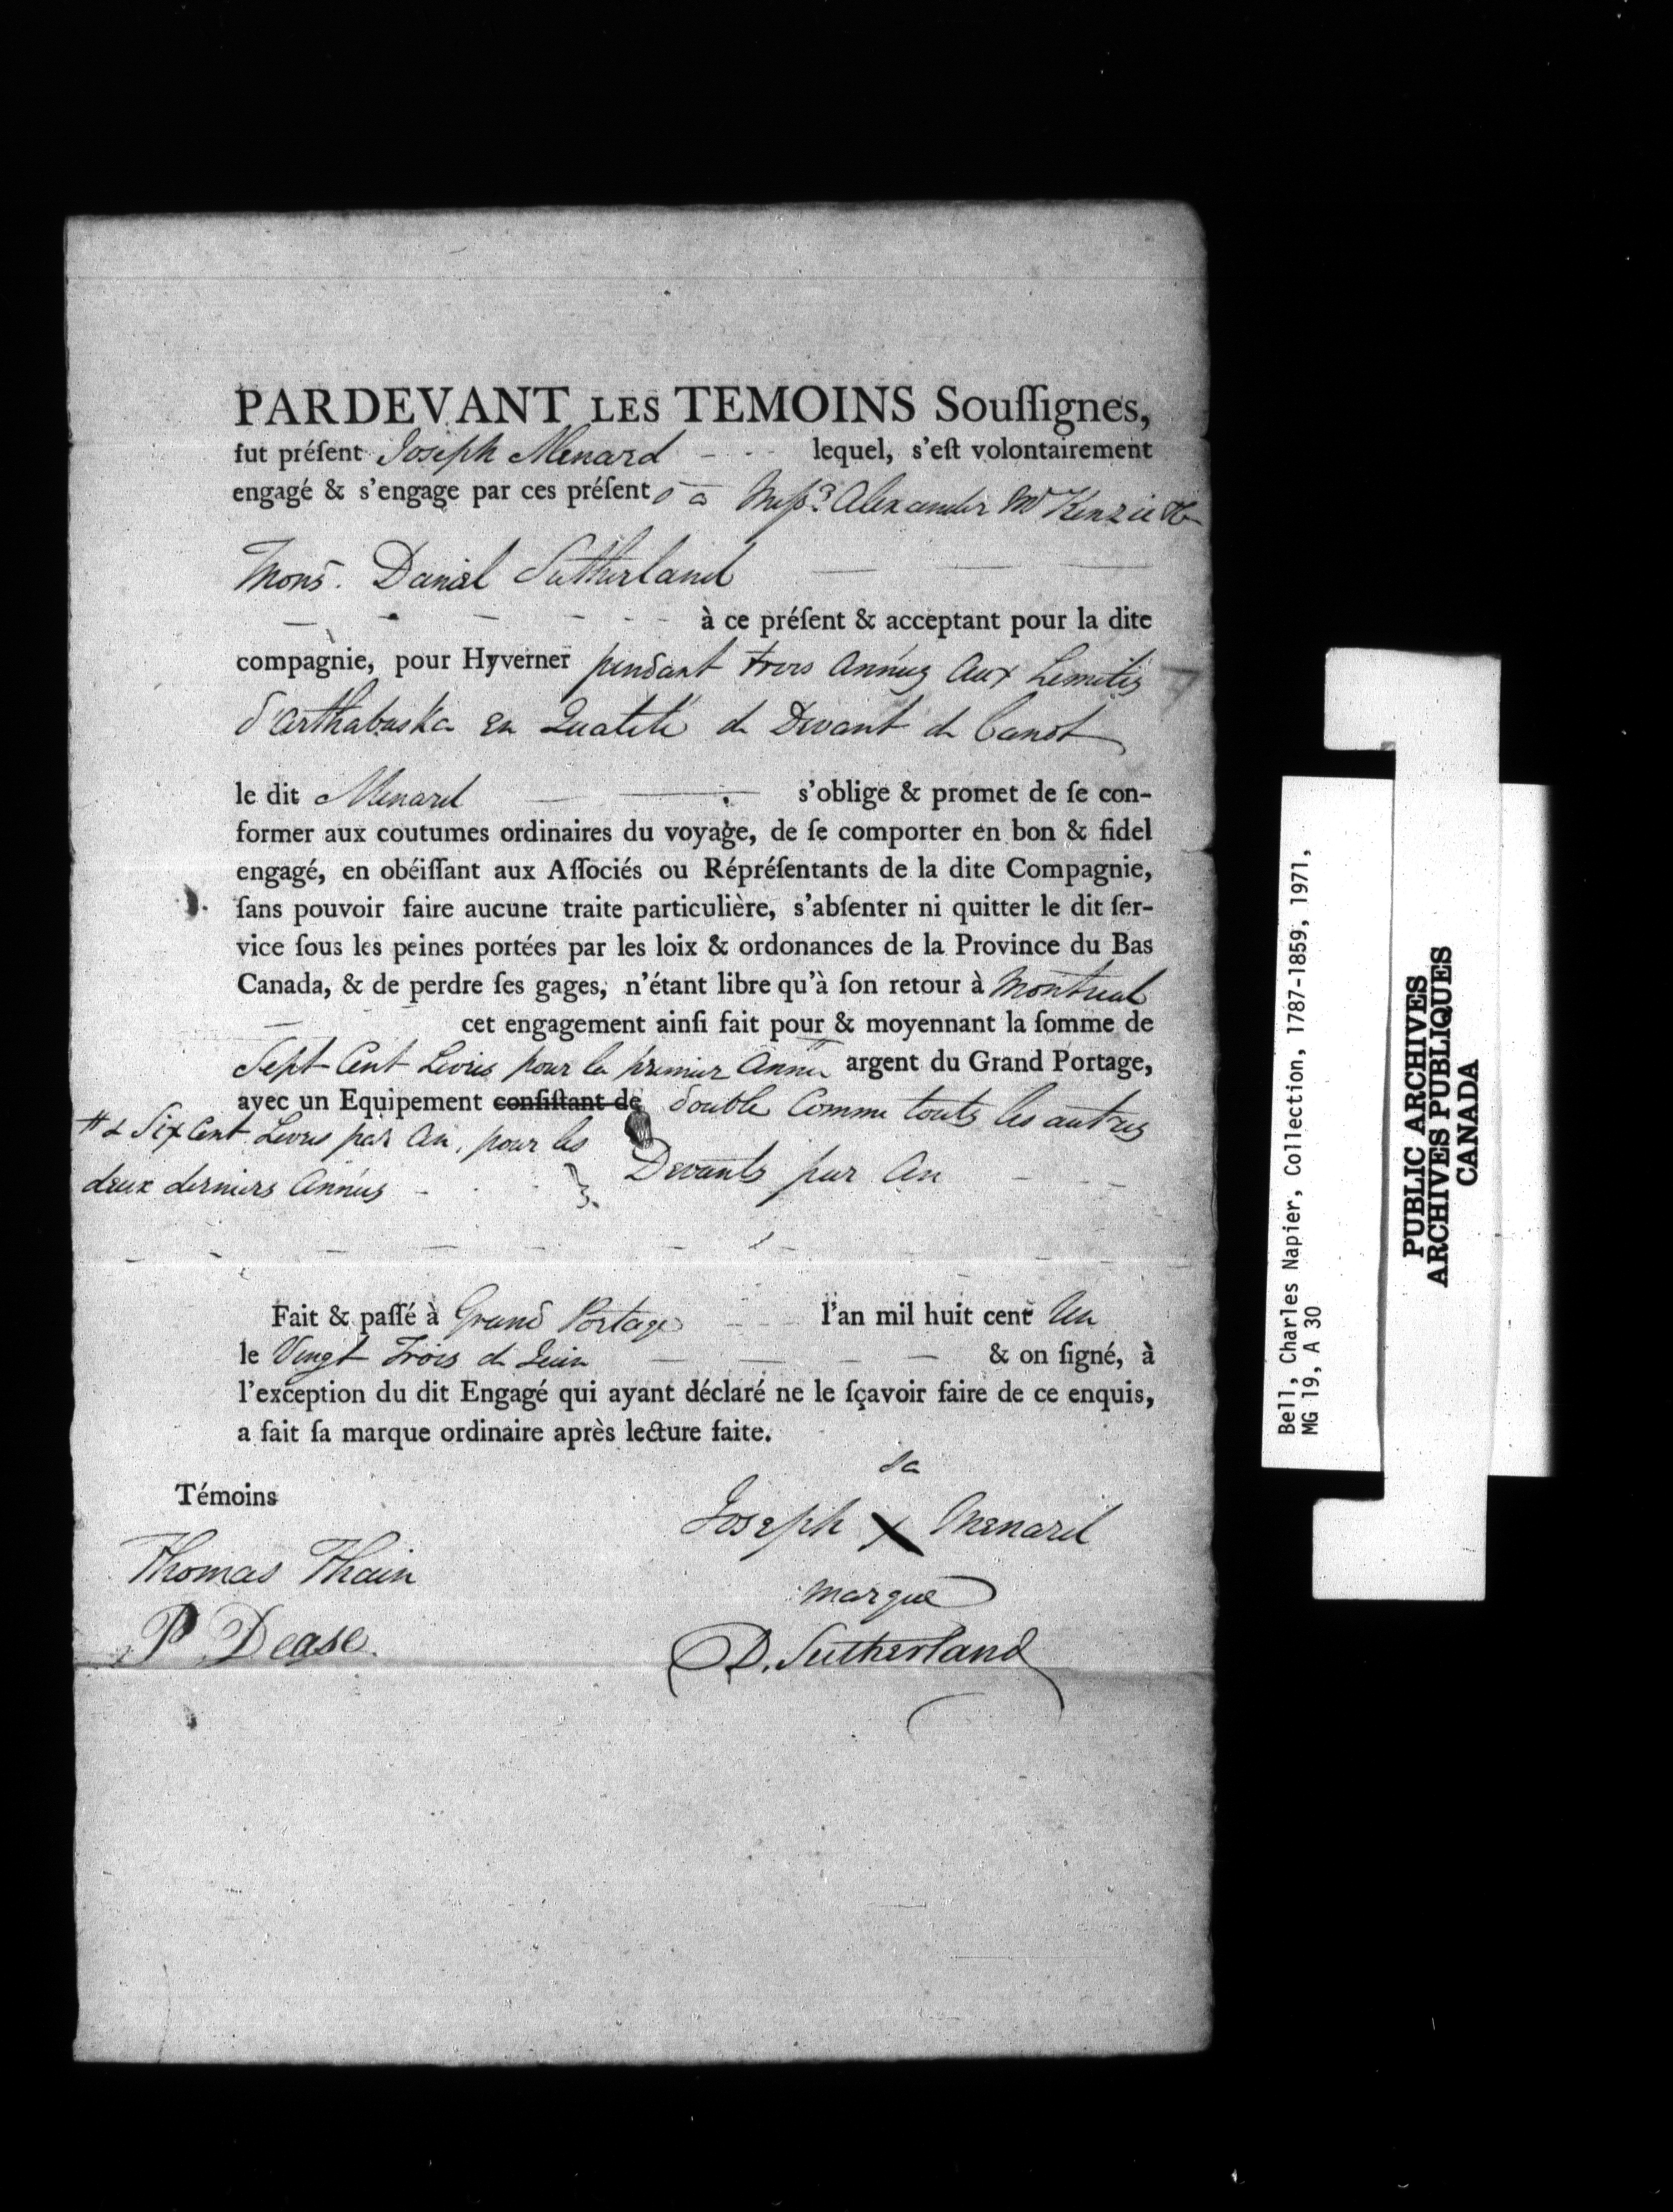 PARDEVANT LES TEMOINS Souſſignés,
fut préſent Joseph Menard - - - lequel, s'eſt volontairement
engagé & s'engage par ces préſents a Meſsrs Alexander McKenzie &
Mons. Daniel Sutherland
à ce préſent & acceptant pour la dite
compagnie, pour Hyverner pendant trois Années Aux Limites
d'arthabaska en Qualité de Devant de Canot
le dit Menard s'oblige & promet de ſe con-
former aux coutumes ordinaires du voyage, de ſe comporter en bon & fidel
engagé, en obéiſſant aux Aſſociés ou Répréſentants de la dite Compagnie,
ſans pouvoir faire aucune traite particulière, s'abſenter ni quitter le dit ſer-
vice ſous les peines portées par les loix & ordonances de la Province du Bas
Canada, & de perdre ſes gages, n'étant libre qu'à ſon retour à Montreal
cet engagement ainſi fait pour & moyennant la ſomme de
Sept Cent Livres pour la premier Année argent du Grand Portage,
avec un Equipement conſiſtant de double Comme touts les autres
# & Six Cent Livres par An, pour les
Devants par An
deux derniers Années
Fait & paſſé à Grand Portage l'an mil huit cent Un
le Vingt Trois de Juin & on ſigné, à
l'exception du dit Engagé qui ayant déclaré ne le ſçavoir faire de ce enquis,
a fait ſa marque ordinaire après lecture faite.
Témoins
sa
Joseph X Menard
marque
Thomas Thain
P Dease
D. Sutherland
Bell, Charles Napier, Collection, 1787-1859, 1971,
MG 19, A 30
PUBLIC ARCHIVES
ARCHIVES PUBLIQUES
CANADA